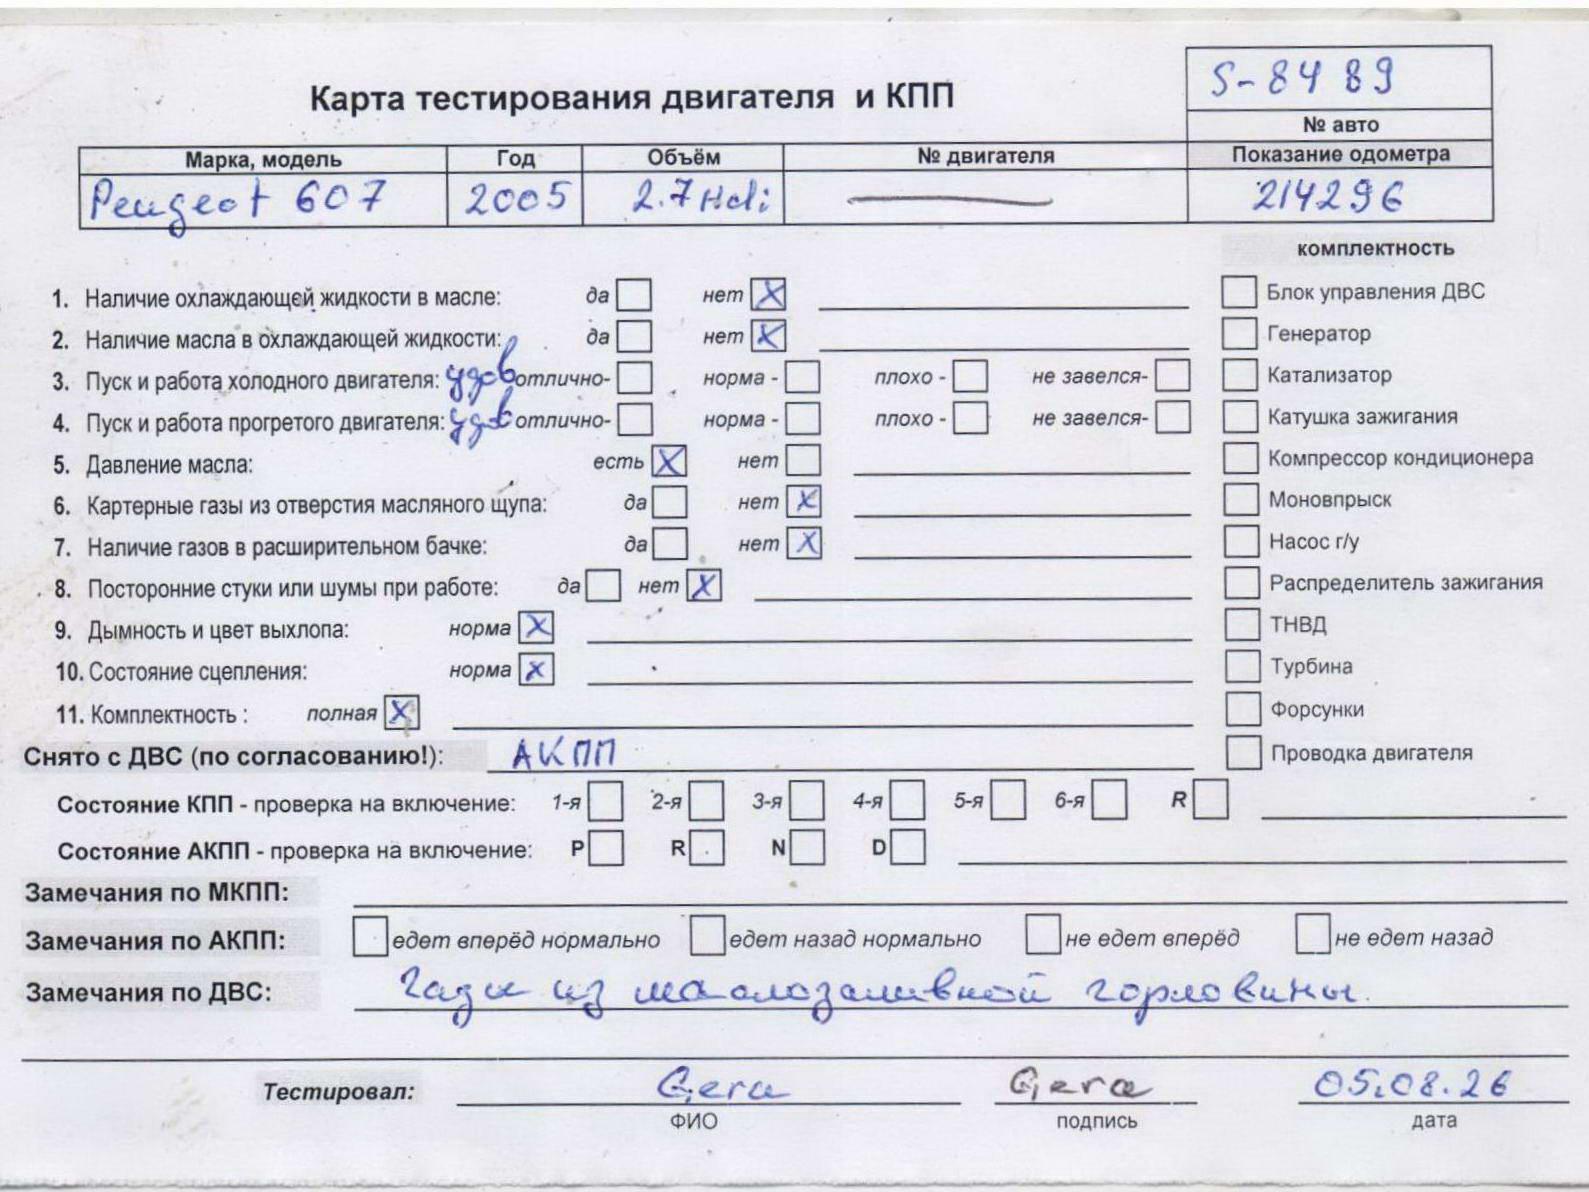 S-8489
Карта тестирования двигателя и КПП
№ авто
Марка, модель Год Объём № двигателя Показание одометра
Peugeot 607 2005 2.7 Hdi 214296
комплектность
1. Наличие охлаждающей жидкости в масле: да нет X Блок управления ДВС
2. Наличие масла в охлаждающей жидкости: да нет X Генератор
3. Пуск и работа холодного двигателя: удов отлично- норма - плохо - не завелся- Катализатор
4. Пуск и работа прогретого двигателя: удов отлично- норма - плохо - не завелся- Катушка зажигания
5. Давление масла: есть X нет Компрессор кондиционера
6. Картерные газы из отверстия масляного щупа: да нет X Моновпрыск
7. Наличие газов в расширительном бачке: да нет X Насос г/у
8. Посторонние стуки или шумы при работе: да нет X Распределитель зажигания
9. Дымность и цвет выхлопа: норма X ТНВД
10. Состояние сцепления: норма X Турбина
11. Комплектность : полная X Форсунки
Снято с ДВС (по согласованию!): АКПП Проводка двигателя
Состояние КПП - проверка на включение: 1-я 2-я 3-я 4-я 5-я 6-я R
Состояние АКПП - проверка на включение: P R N D
Замечания по МКПП:
Замечания по АКПП: едет вперёд нормально едет назад нормально не едет вперёд не едет назад
Замечания по ДВС: Гады из маслозаливной горловины.
Тестировал: Gera Gera 05.08.26
ФИО подпись дата